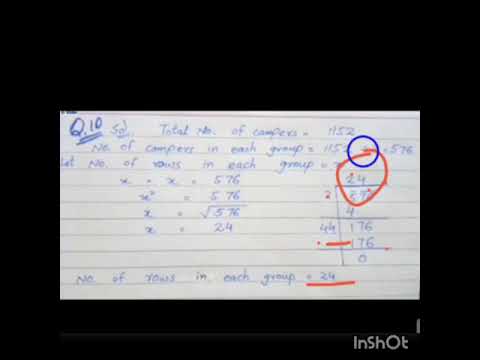 Q.10 Sol. Total No. of campers = 1152
No. of campers in each group = 1152 ÷ = 576
Let No. of rows in each group = x
x · x = 576
x² = 576
x = √576
x = 24
24
2 576
4
44 176
176
0
No. of rows in each group = 24
InShOt